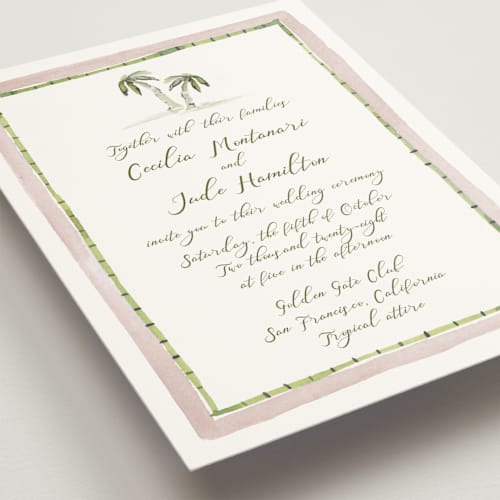 Together with their families
Cecilia Montanari
and
Jude Hamilton
invite you to their wedding ceremony
Saturday, the fifth of October
Two thousand twenty-eight
at five in the afternoon
Golden Gate Club
San Francisco, California
Tropical attire